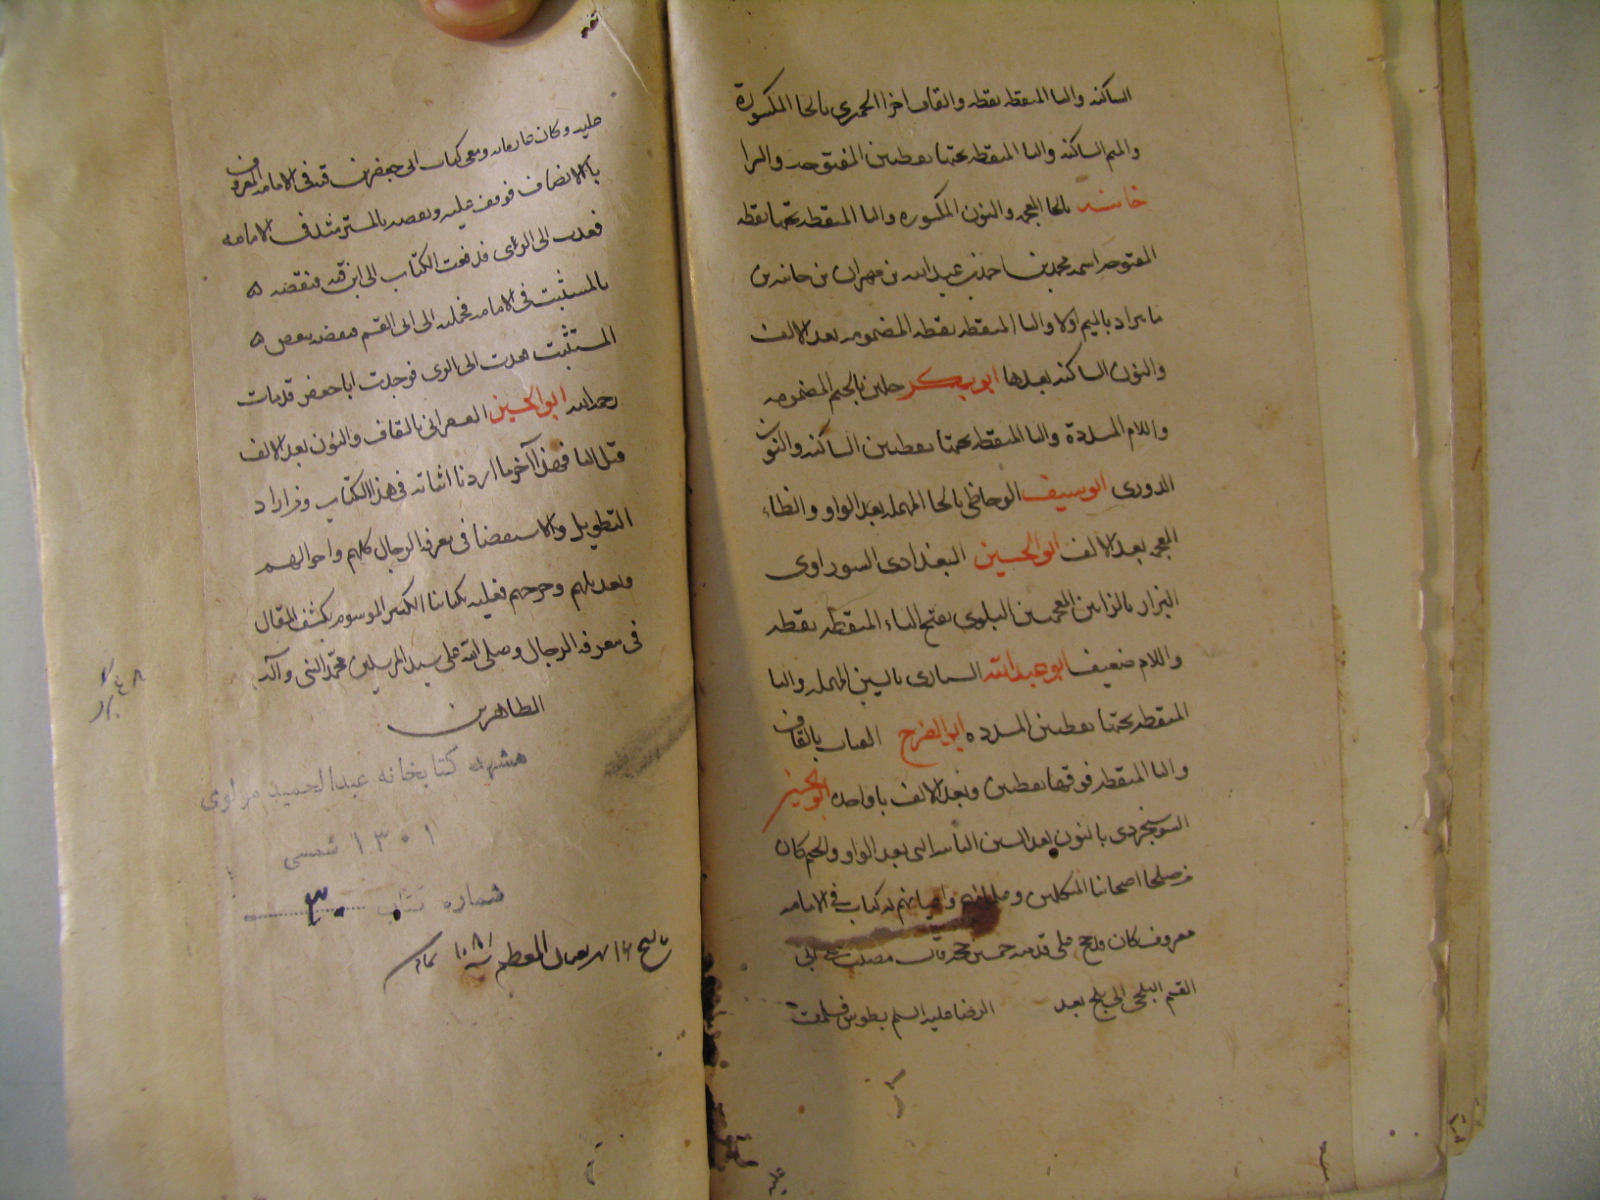 الساكنه والبا المنقطه نقطه والقاف اخرا الحميرى بالحا المكسورة
والميم الساكنه واليا المنقطه تحتها نقطتين المفتوحه والرا
خانبه بالخا المعجمه والنون المكسوره والبا المنقطه تحتها نقطه
المفتوحه اسمه محمد بن احمد بن عبد الله بن مهران بن خانبه بن
بالميم اولا والبا المنقطه نقطه المضمومه بعد الالف
والنون الساكنه بعدها ابو بكر جلين بالجيم المضمومه
واللام المشددة واليا المنقطه تحتها نقطتين الساكنه والنون
الدورى ابو سيف الوحاظى بالحا المهمله بعد الواو والظاء
المعجمه بعد الالف ابو الحسين البغدادى السوراوى
البزاز بالزايين المعجمتين البلوى بفتح الباء المنقطه نقطه
واللام ضعيف ابو عبد الله السيارى بالسين المهمله واليا
المنقطه تحتها نقطتين المشدده ابو الفرج القناب بالقاف
والنا المنقطه فوقها نقطتين وبعد الالف با واحده ابو الحسين
السوسنجردى بالنون بعد السين الثانيه التى بعد الواو والجيم كان
من صلحا اصحابنا المتكلمين واعيانهم له كتاب فى الامامه
معروف كان قد حج على قدميه خمسين حجه قال مضيت الى ابى
القسم البلخى الى بلخ بعد الرضا عليه السلم بطوس فسلمت
عليه وكان عارفا به ومعى كتاب ابى جعفر بن قبه فى الامامه المعروف
بالانصاف فوقف عليه ونقضه بالمسترشد فى الامامه
فعدت الى الرى فدفعت الكتاب الى ابن قبه فنقضه
بالمستثبت فى الامامه فحملته الى ابى القسم فنقضه بنقض
المستثبت فعدت الى الرى فوجدت ابا جعفر قد مات
رحمه الله ابو الحسين بالقاف والنون بعد الالف
قبل اليا فهذا آخر ما اردنا اثباته فى هذا الكتاب ومن اراد
التطويل والاستقصا فى معرفه الرجال كلهم واحوالهم
وتعديلهم وجرحهم فعليه بكتابنا الكبير الموسوم بكشف المقال
فى معرفه الرجال وصلى الله على سيد المرسلين محمد النبى وآله
الطاهرين
مشهد كتابخانه عبدالحميد مولوى
١٣٠١ شمسى
شماره كتاب ٣٠
المعظم سنه ١٠٨١